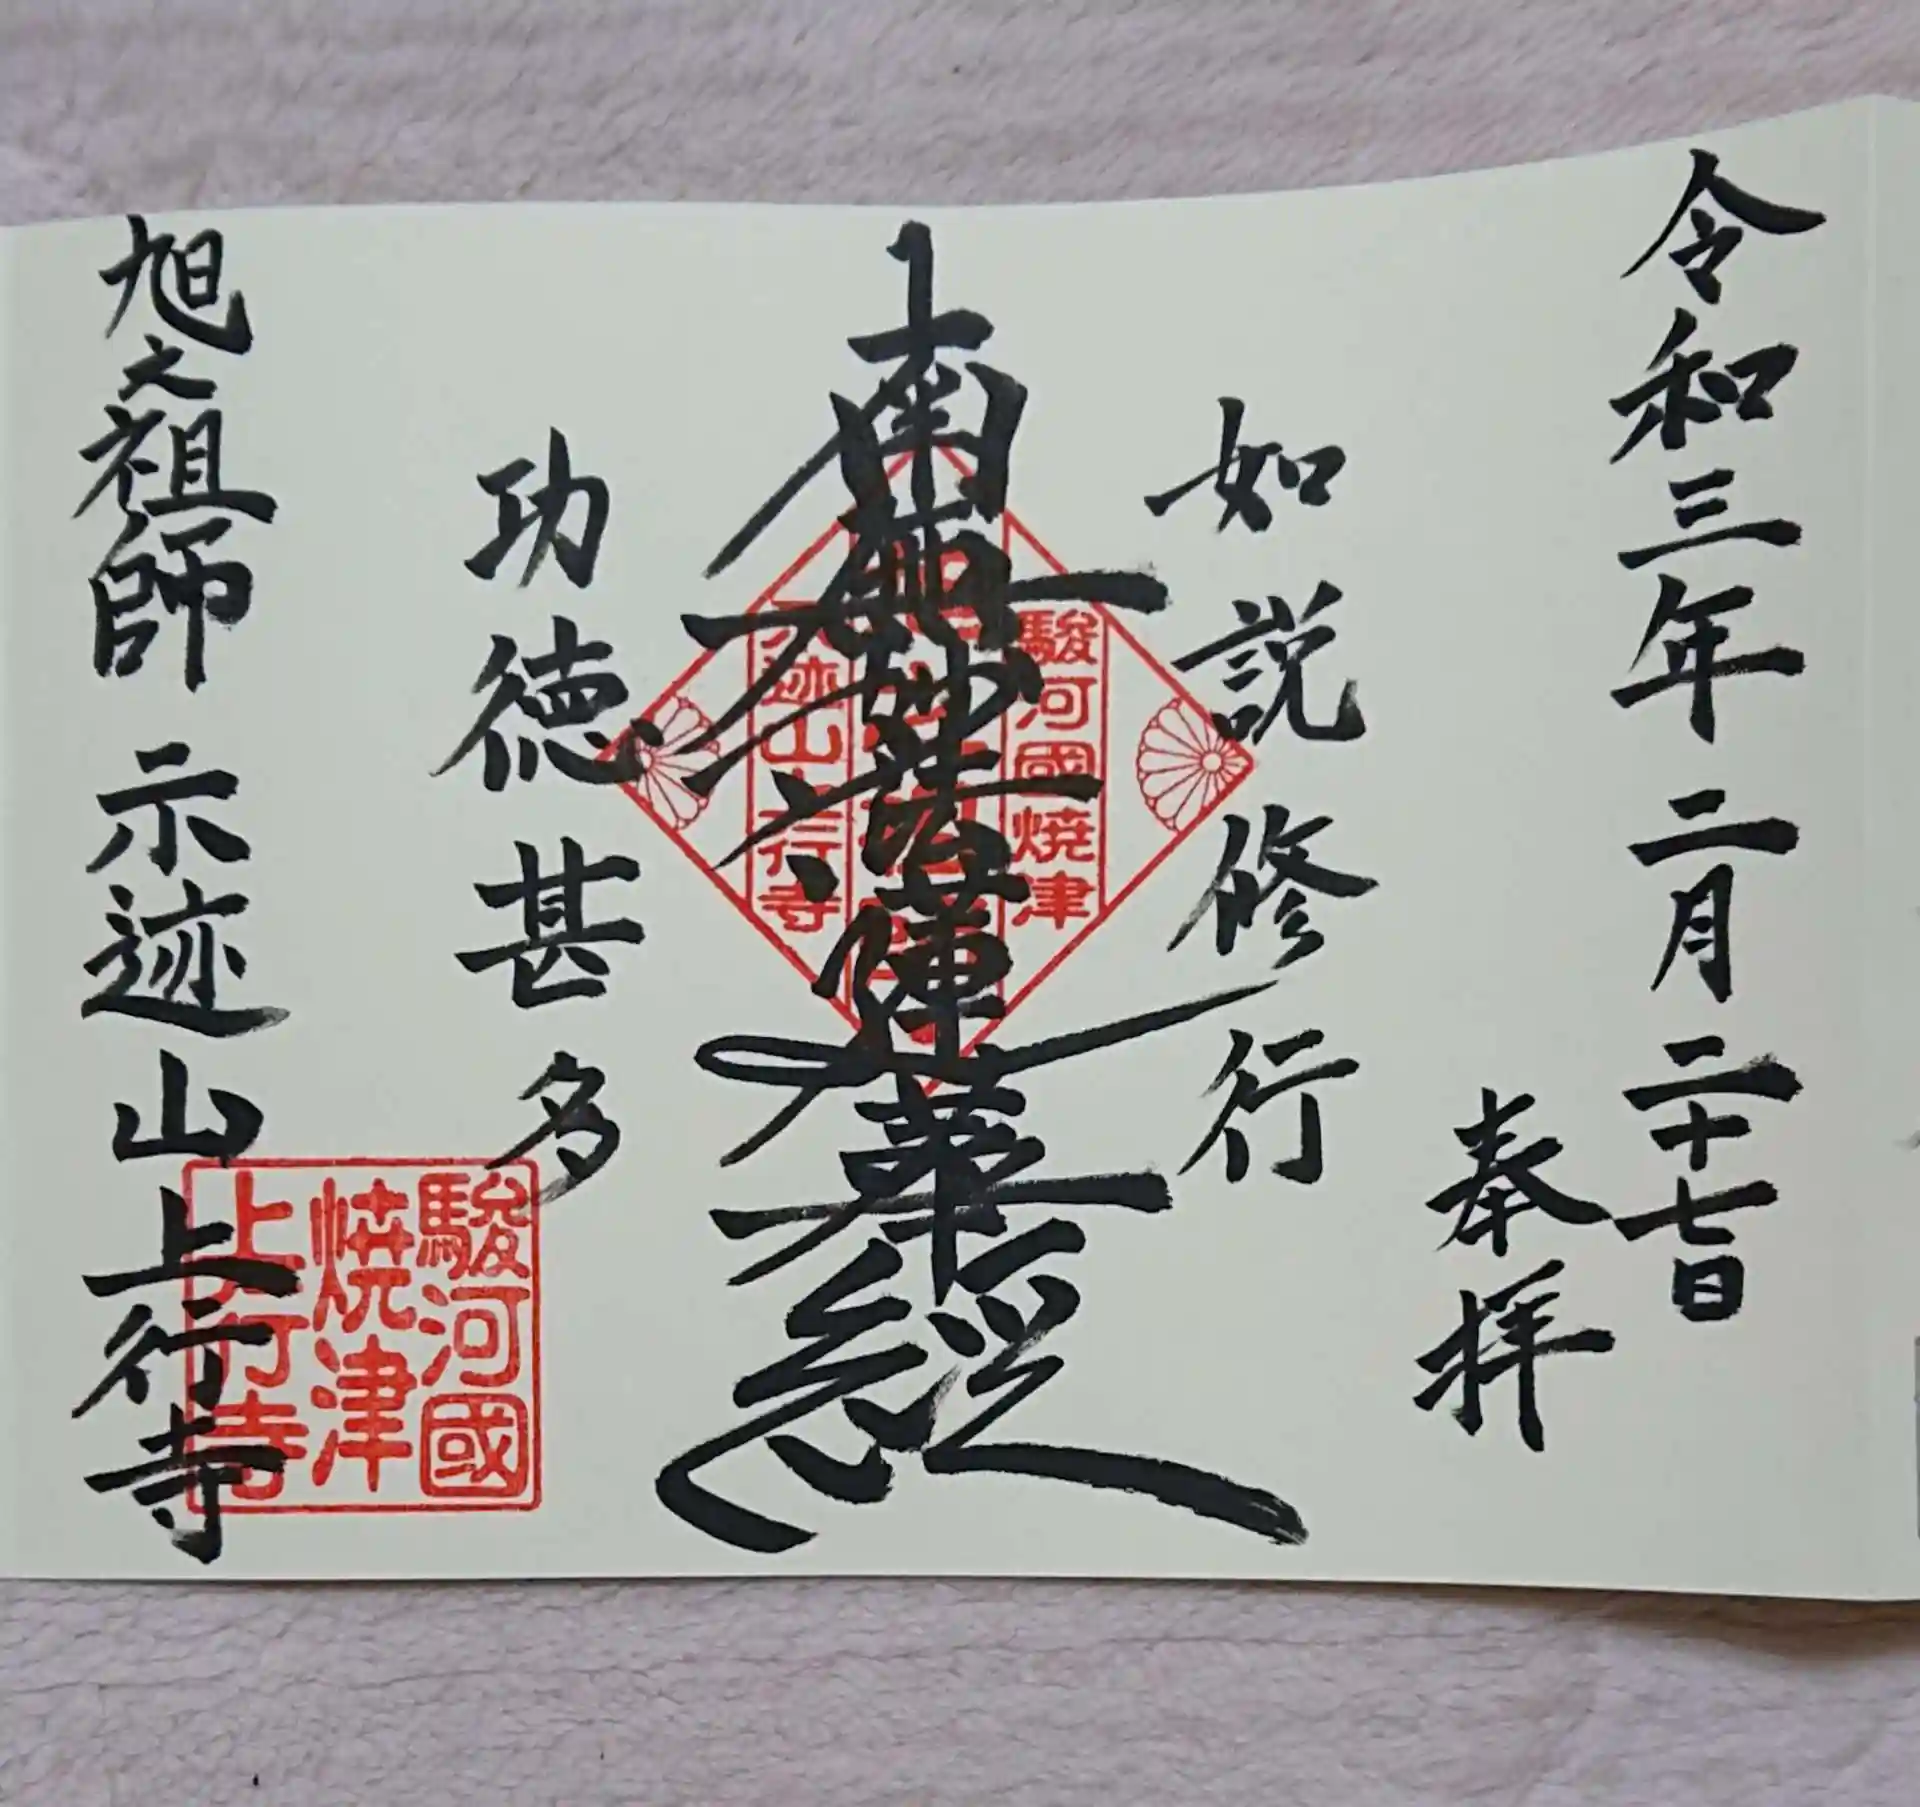 令和三年二月二十七日
奉拝
如説修行
南無妙法蓮華経
功徳甚多
旭之祖師 示迹山上行寺
駿河國焼津
迹山上行寺
駿河國
焼津
上行寺